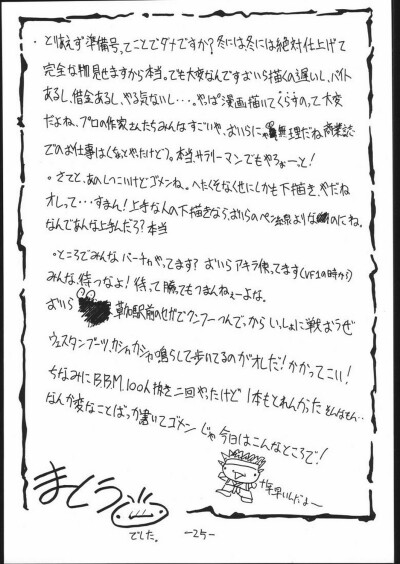 ・とりあえず準備号、ってことでダメですか?冬には、冬には絶対仕上げて
完全な物見せますから本当。でも大変なんですおいら描くの遅いし、バイト
あるし、借金あるし、やる気ないし…。やっぱ漫画描いてくらすのって大変
だよね、プロの作家さんたちみんなすごいや、おいらに 無理だね商業誌
でのお仕事は(なぁとやったけど)。本当サラリーマンでもやろぉーっと!
・さてと、あいしつこいけどゴメンね。へたくそなくせにしかも下描き、やだね
オレって…すまん!上手な人の下描きなら、おいらのペン線より のにね。
なんであんな上手んだろ?本当
・ところでみんなバーチャやってます?おいらアキラ使ってます(VF1の時から)
みんな、待つなよ!待って勝ってもつまんねぇーよな。
おいら 駅前のセガでクンフーつんで、から いっしょに戦おうぜ
ウェスタンブーツ、ガシャガシャ鳴らして歩いてるのがオレだ!かかってこい!
ちなみにB.B.M.100人抜き二回やったけど1本もとれんかった そんなもん…
なんか変なことばっか書いてゴメン じゃ今日はこんなところで!
十年早いんだよー
まとう
でした。
-25-